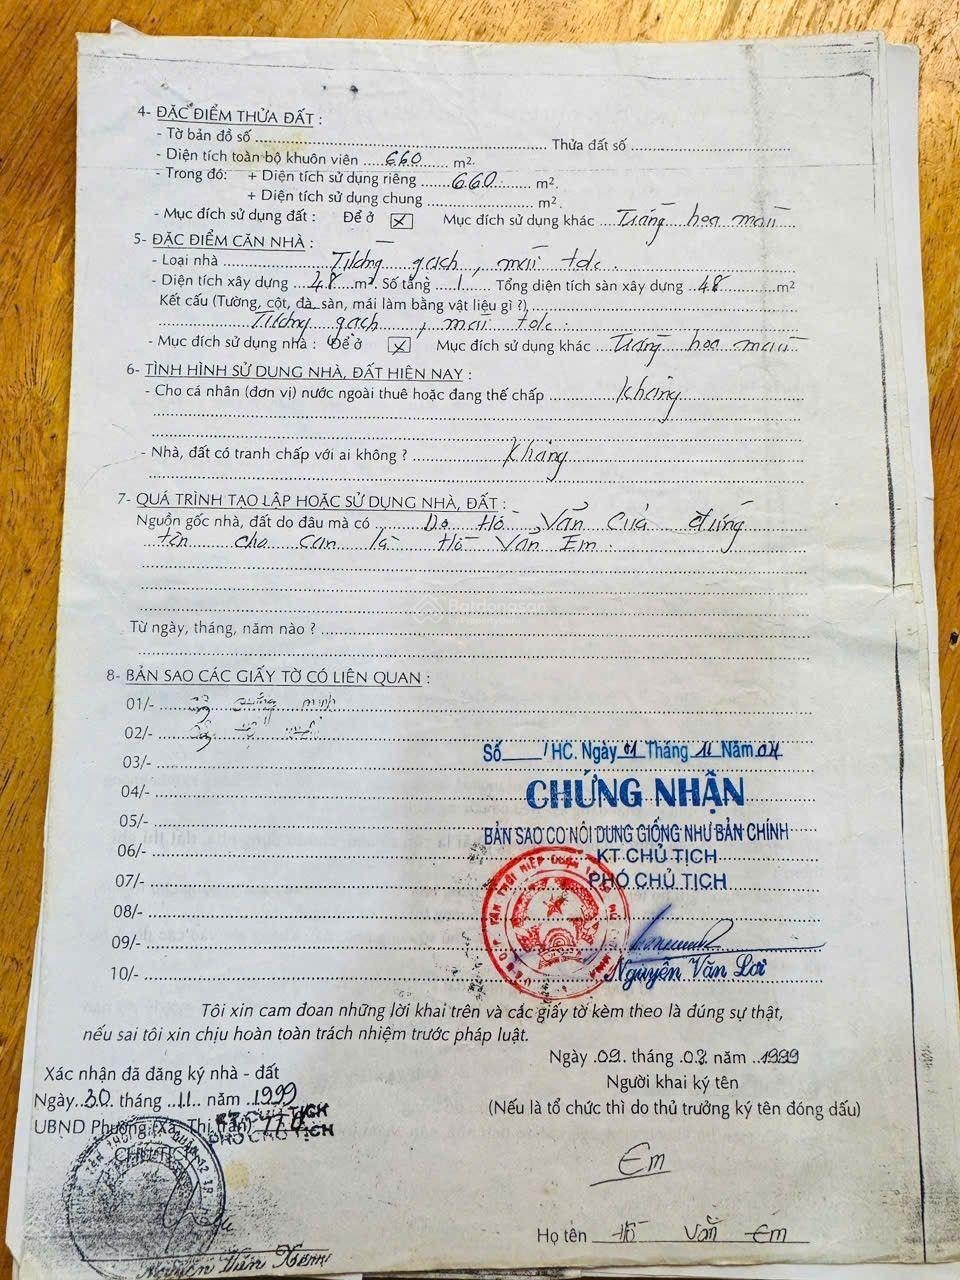 4- ĐẶC ĐIỂM THỬA ĐẤT :
- Tờ bản đồ số ........ Thửa đất số ........
- Diện tích toàn bộ khuôn viên ....660.... m².
- Trong đó: + Diện tích sử dụng riêng ....660.... m².
+ Diện tích sử dụng chung ........ m².
- Mục đích sử dụng đất : Để ở ☒ Mục đích sử dụng khác ...Trồng hoa màu
5- ĐẶC ĐIỂM CĂN NHÀ :
- Loại nhà ........ Tường gạch, mái tole.
- Diện tích xây dựng ...48...m². Số tầng ...1... Tổng diện tích sàn xây dựng ..48......m²
Kết cấu (Tường, cột, đà, sàn, mái làm bằng vật liệu gì ?)
Tường gạch, mái tole.
- Mục đích sử dụng nhà : Để ở ☒ Mục đích sử dụng khác ...Trồng hoa màu
6- TÌNH HÌNH SỬ DỤNG NHÀ, ĐẤT HIỆN NAY :
- Cho cá nhân (đơn vị) nước ngoài thuê hoặc đang thế chấp ........ Không
- Nhà, đất có tranh chấp với ai không ? ........ Không
7- QUÁ TRÌNH TẠO LẬP HOẶC SỬ DỤNG NHÀ, ĐẤT :
Nguồn gốc nhà, đất do đâu mà có ..... Do Hồ Văn Cuả đứng
tên cho con là Hồ Văn Em.
Batdongsan
by PropertyGuru
Từ ngày, tháng, năm nào ? ........
8- BẢN SAO CÁC GIẤY TỜ CÓ LIÊN QUAN :
01/- ........ minh
02/- ........
Số___/HC. Ngày 01 Tháng 11 Năm 04
03/- ........
CHỨNG NHẬN
04/- ........
05/- ........
BẢN SAO CO NÔI DUNG GIỐNG NHƯ BẢN CHÍNH
06/- ........
KT CHỦ TỊCH
07/- ........
PHÓ CHỦ TỊCH
08/- ........
09/- ........
10/- ........
Nguyễn Văn Lơi
Tôi xin cam đoan những lời khai trên và các giấy tờ kèm theo là đúng sự thật,
nếu sai tôi xin chịu hoàn toàn trách nhiệm trước pháp luật.
Ngày .09. tháng .03. năm ..1999
Xác nhận đã đăng ký nhà - đất
Người khai ký tên
Ngày..30. tháng ..11.. năm ..1999
(Nếu là tổ chức thì do thủ trưởng ký tên đóng dấu)
UBND Phường (Xã, Thị Trấn)
KT CHỦ TỊCH
PHÓ CHỦ TỊCH
CHỦ TỊCH
Em
Họ tên Hồ Văn Em